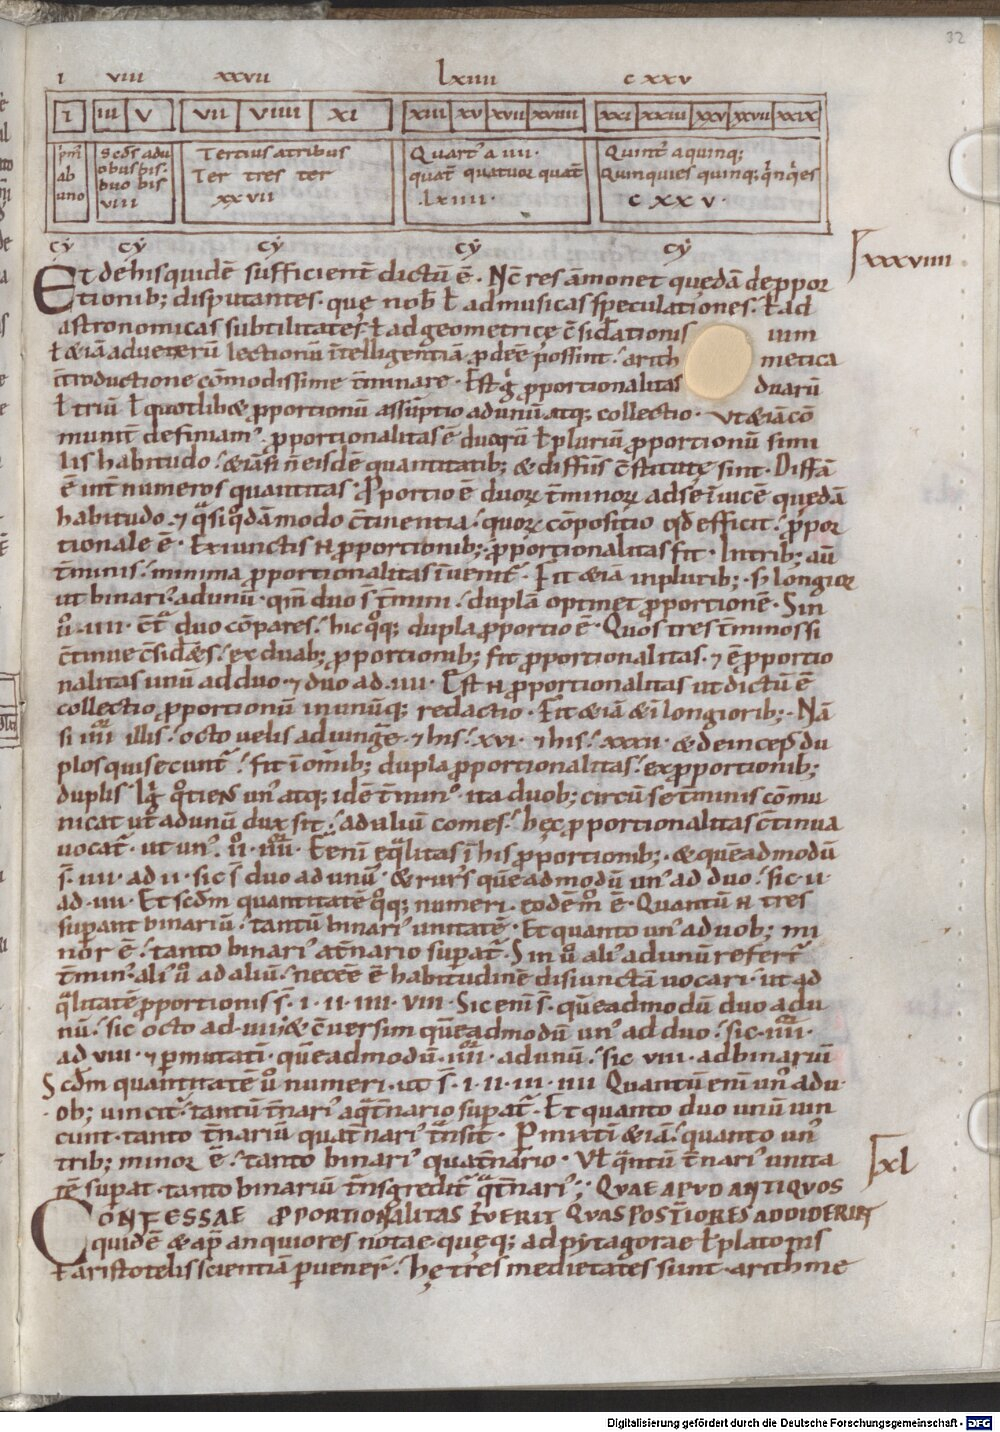 32
i viii xxvii lxiiii c xxv
i iii v vii viiii xi xiii xv xvii xviiii xxi xxiii xxv xxvii xxix
pm̄ ab uno
Scd̄s adu obus bis. duo bis viii
Tertius atribus Ter tres ter xxvii
Quart' a iiii. quat̄ quatuor quat̄ lxiiii.
Quint' a quinq; Quinquies quinq; c xx v.
cẏ cẏ cẏ cẏ cẏ
Et de his quidē sufficient̄ dictū ē. Nc̄ res āmonet quedā de ꝓpor
xxxviiii
tionib; disputantes. quę nob̄ ł ad musicas speculationes. ł ad
astronomicas subtilitates. ł ad geometricę c̄sid̄ationis uim
ł &iā ad ueterū lectionū īteligentiā ꝓdēe possint. arith metica
īntroductione cōmodissime t̄minare. Est g̊ ꝓportionalitas duarū
ł triū ł quotlib& ꝓportionū assūptio ad unū atq; collectio. Vt &iā cō
munit̄ definiam'. ꝓportionalitas ē duarū ł pluriū ꝓportionū simi
lis habitudo. &iāsi n̄ eisdē quantitatib; & diffn̄s c̄stitutę sint. Diff̄a
ē int̄ numeros quantitas. Ꝓportio ē duoꝝ t̄minoꝝ ad se īuicē quedā
habitudo. ⁊ q̈si q̊dāmodo c̄tinentia. quoꝝ cōpositio qd̄ efficit. ꝓpor
tionale ē. Ex iunctis n̄ ꝓportionib; ꝓportionalitas fit. In trib; aū
t̄minis. minima ꝓportionalitas īuenit̄. Fit &iā in plurib; s; longior
ut binari' ad unū. qm̄ duo s̄ t̄mini. duplā optinet ꝓportionē. Sin
ů. iiii. c̄t̄ duo cōpares. hic q̊q; dupla ꝓportio ē. Quos tres t̄minos si
c̄tinue c̄sid̄es. ex duab; ꝓportionib; fit ꝓportionalitas. ⁊ ē ꝓportio
nalitas unū ad duo. ⁊ duo ad. iiii. Est n̄ ꝓportionalitas ut dictū ē
collectio ꝓportionū in unūq; redactio. Fit &iā & ī longiorib;. Nā
si illis. octo uelis adiunḡe. ⁊ his. xvi. ⁊ his. xxxii. & deincep̄ du
plos qui secunt̄. fit ī omīb; dupla ꝓportionalitas. ex ꝓportionib;
duplis. Ig̊ q̊tiens un' atq; idē t̄min'. ita duob; circū se t̄minis cōmu
nicat ut ad unū dux sit. ad aliū comes. hęc ꝓportionalitas c̄tinua
uocat̄. ut un'. ii. iiii. E enī eq̄litas ī his ꝓportionib;. & quēadmodū
s̄. iiii. ad ii. sic s̄ duo ad unū. & rurs' quēadmodū un' ad duo. sic ii
ad. iiii. Et scdm̄ quantitatē q̊q; numeri. eodēm̊ ē. Quantū n̄ tres
supant binariū. tantū binari' unitatē. Et quanto un' a duob; mi
nor ē. tanto binari' at̄nario supat̄. Sin ů ali' ad unū refert̄
t̄min'. ali' ů ad aliū. necēe ē habitudinē disiunctā uocari. ut qd
q̄litatē ꝓportionis s̄. i. ii. iiii. viii. Sic enī s̄. quēadmodū duo ad u
nū. sic octo ad. iiii. & c̄uersim quēadmodū un' ad duo. sic. iiii.
ad viii. ⁊ p̄mutatī. quēadmodū. iiii. ad unū. sic viii. ad binariū
Scdm̄ quantitatē ů numeri. ut s̄. i. ii. iii. iiii Quantū enī un' a du
ob; uincit̄. tantū t̄nari' a q̄t̄nario supat̄. Et quanto duo unū uin
cunt. tanto t̄nariū quat̄nari' t̄nsit. P̄mixtī &iā. quanto un'
trib; minor ē. tanto binari' quat̄nario. Vł q̄ntū t̄nari' unita
xl
tē supat. tanto binariū t̄nsgredit̄ q̄t̄nari'; QVAE APVD ANTIQVOS
CONFESSAE ꝒPORTIONALITAS FVERIT QVAS POSTIORES ADDIDERINT
quidē & ap̄ anquiores notae quęq; ad pytagorae ł platonis
ł aristotelis scientiā ꝑuener̄. hę tres medietates sunt. arithme
Digitalisierung gefördert durch die Deutsche Forschungsgemeinschaft - DFG